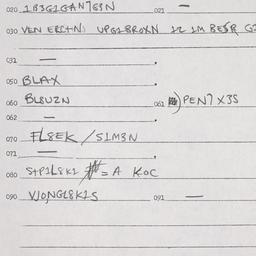 020 1B3G1GAN7G3N 021 —
030 VEN ERC+N: UPG1BROXN 12 1M BESR G2
031 —
050 BLAX
060 BL8UZN 061 PEN7 X3S
062 —
070 FL8EK / S1M3N
071 —
080 S+P1L8K1 # = A KOC
090 VJONGL8K1S 091 —